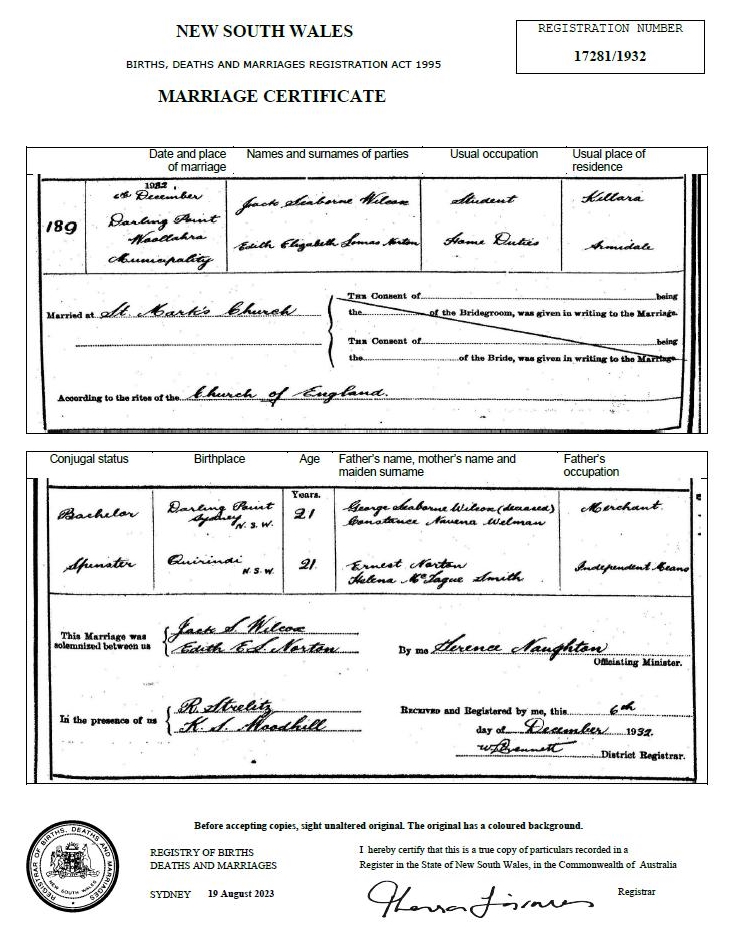 NEW SOUTH WALES
REGISTRATION NUMBER
17281/1932
BIRTHS, DEATHS AND MARRIAGES REGISTRATION ACT 1995
MARRIAGE CERTIFICATE
Date and place of marriage
Names and surnames of parties
Usual occupation
Usual place of residence
189
1932
6th December
Darling Point
Woollahra
Municipality
Jack Seaborne Wilcox
Student
Killara
Edith Elizabeth Lomas Norton
Home Duties
Armidale
Married at St. Mark's Church
The Consent of being
the of the Bridegroom, was given in writing to the Marriage.
The Consent of being
the of the Bride, was given in writing to the Marriage.
According to the rites of the Church of England.
Conjugal status
Birthplace
Age
Father's name, mother's name and maiden surname
Father's occupation
Years.
Bachelor
Darling Point
Sydney
N.S.W.
21
George Seaborne Wilcox (deceased)
Constance Navena Welman
Merchant
Spinster
Quirindi
N.S.W.
21
Ernest Norton
Helena McTague Smith
Independent Means
This Marriage was solemnized between us
Jack S Wilcox
Edith E L Norton
By me Terence Naughton
Officiating Minister.
In the presence of us
R. Strelitz
K. S. Woodhill
Received and Registered by me, this 6th
day of December 1932.
District Registrar.
Before accepting copies, sight unaltered original. The original has a coloured background.
REGISTRAR OF BIRTHS, DEATHS AND MARRIAGES
NEW SOUTH WALES
REGISTRY OF BIRTHS
DEATHS AND MARRIAGES
SYDNEY 19 August 2023
I hereby certify that this is a true copy of particulars recorded in a
Register in the State of New South Wales, in the Commonwealth of Australia
Registrar